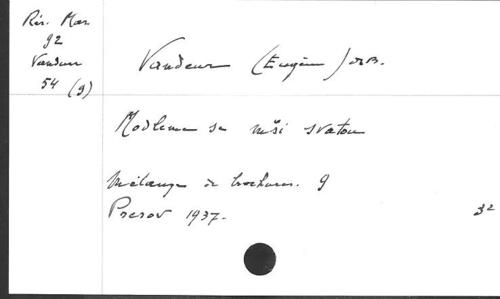 Rés. Mar.
92
Vandeur
54 (9)
Vandeur (Eugène) OSB.
Modleme se mši svatou
Mélange de brochures. 9
Presov 1937.
32